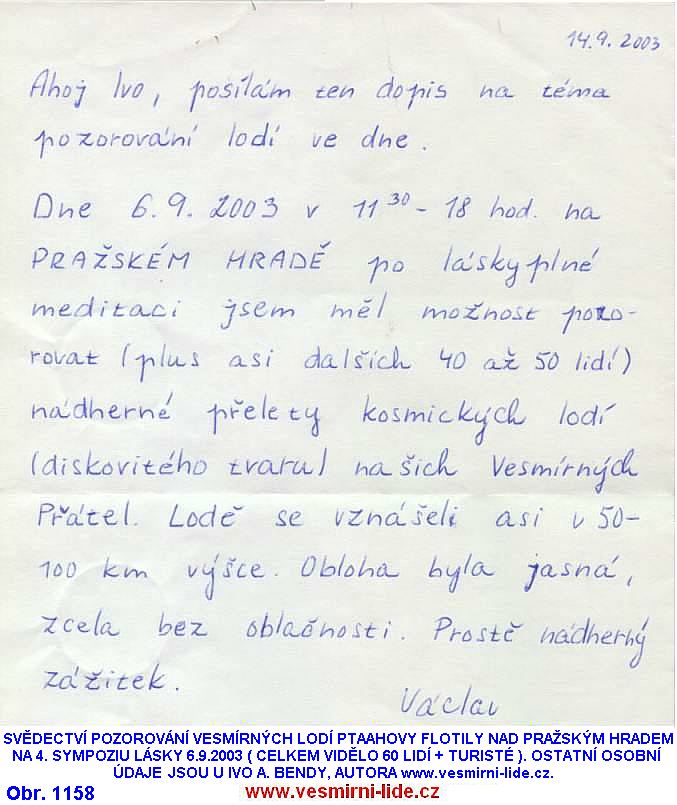 14.9. 2003
Ahoj Ivo, posílám ten dopis na téma
pozorování lodí ve dne.
Dne 6.9.2003 v 11 30 - 18 hod. na
PRAŽSKÉM HRADĚ po láskyplné
meditaci jsem měl možnost pozo-
rovat (plus asi dalších 40 až 50 lidí)
nádherné přelety kosmických lodí
(diskovitého tvaru) našich Vesmírných
Přátel. Lodě se vznášeli asi v 50-
100 km výšce. Obloha byla jasná,
zcela bez oblačnosti. Prostě nádherný
zážitek.
Václav
SVĚDECTVÍ POZOROVÁNÍ VESMÍRNÝCH LODÍ PTAAHOVY FLOTILY NAD PRAŽSKÝM HRADEM
NA 4. SYMPOZIU LÁSKY 6.9.2003 ( CELKEM VIDĚLO 60 LIDÍ + TURISTÉ ). OSTATNÍ OSOBNÍ
ÚDAJE JSOU U IVO A. BENDY, AUTORA www.vesmirni-lide.cz.
Obr. 1158
www.vesmirni-lide.cz